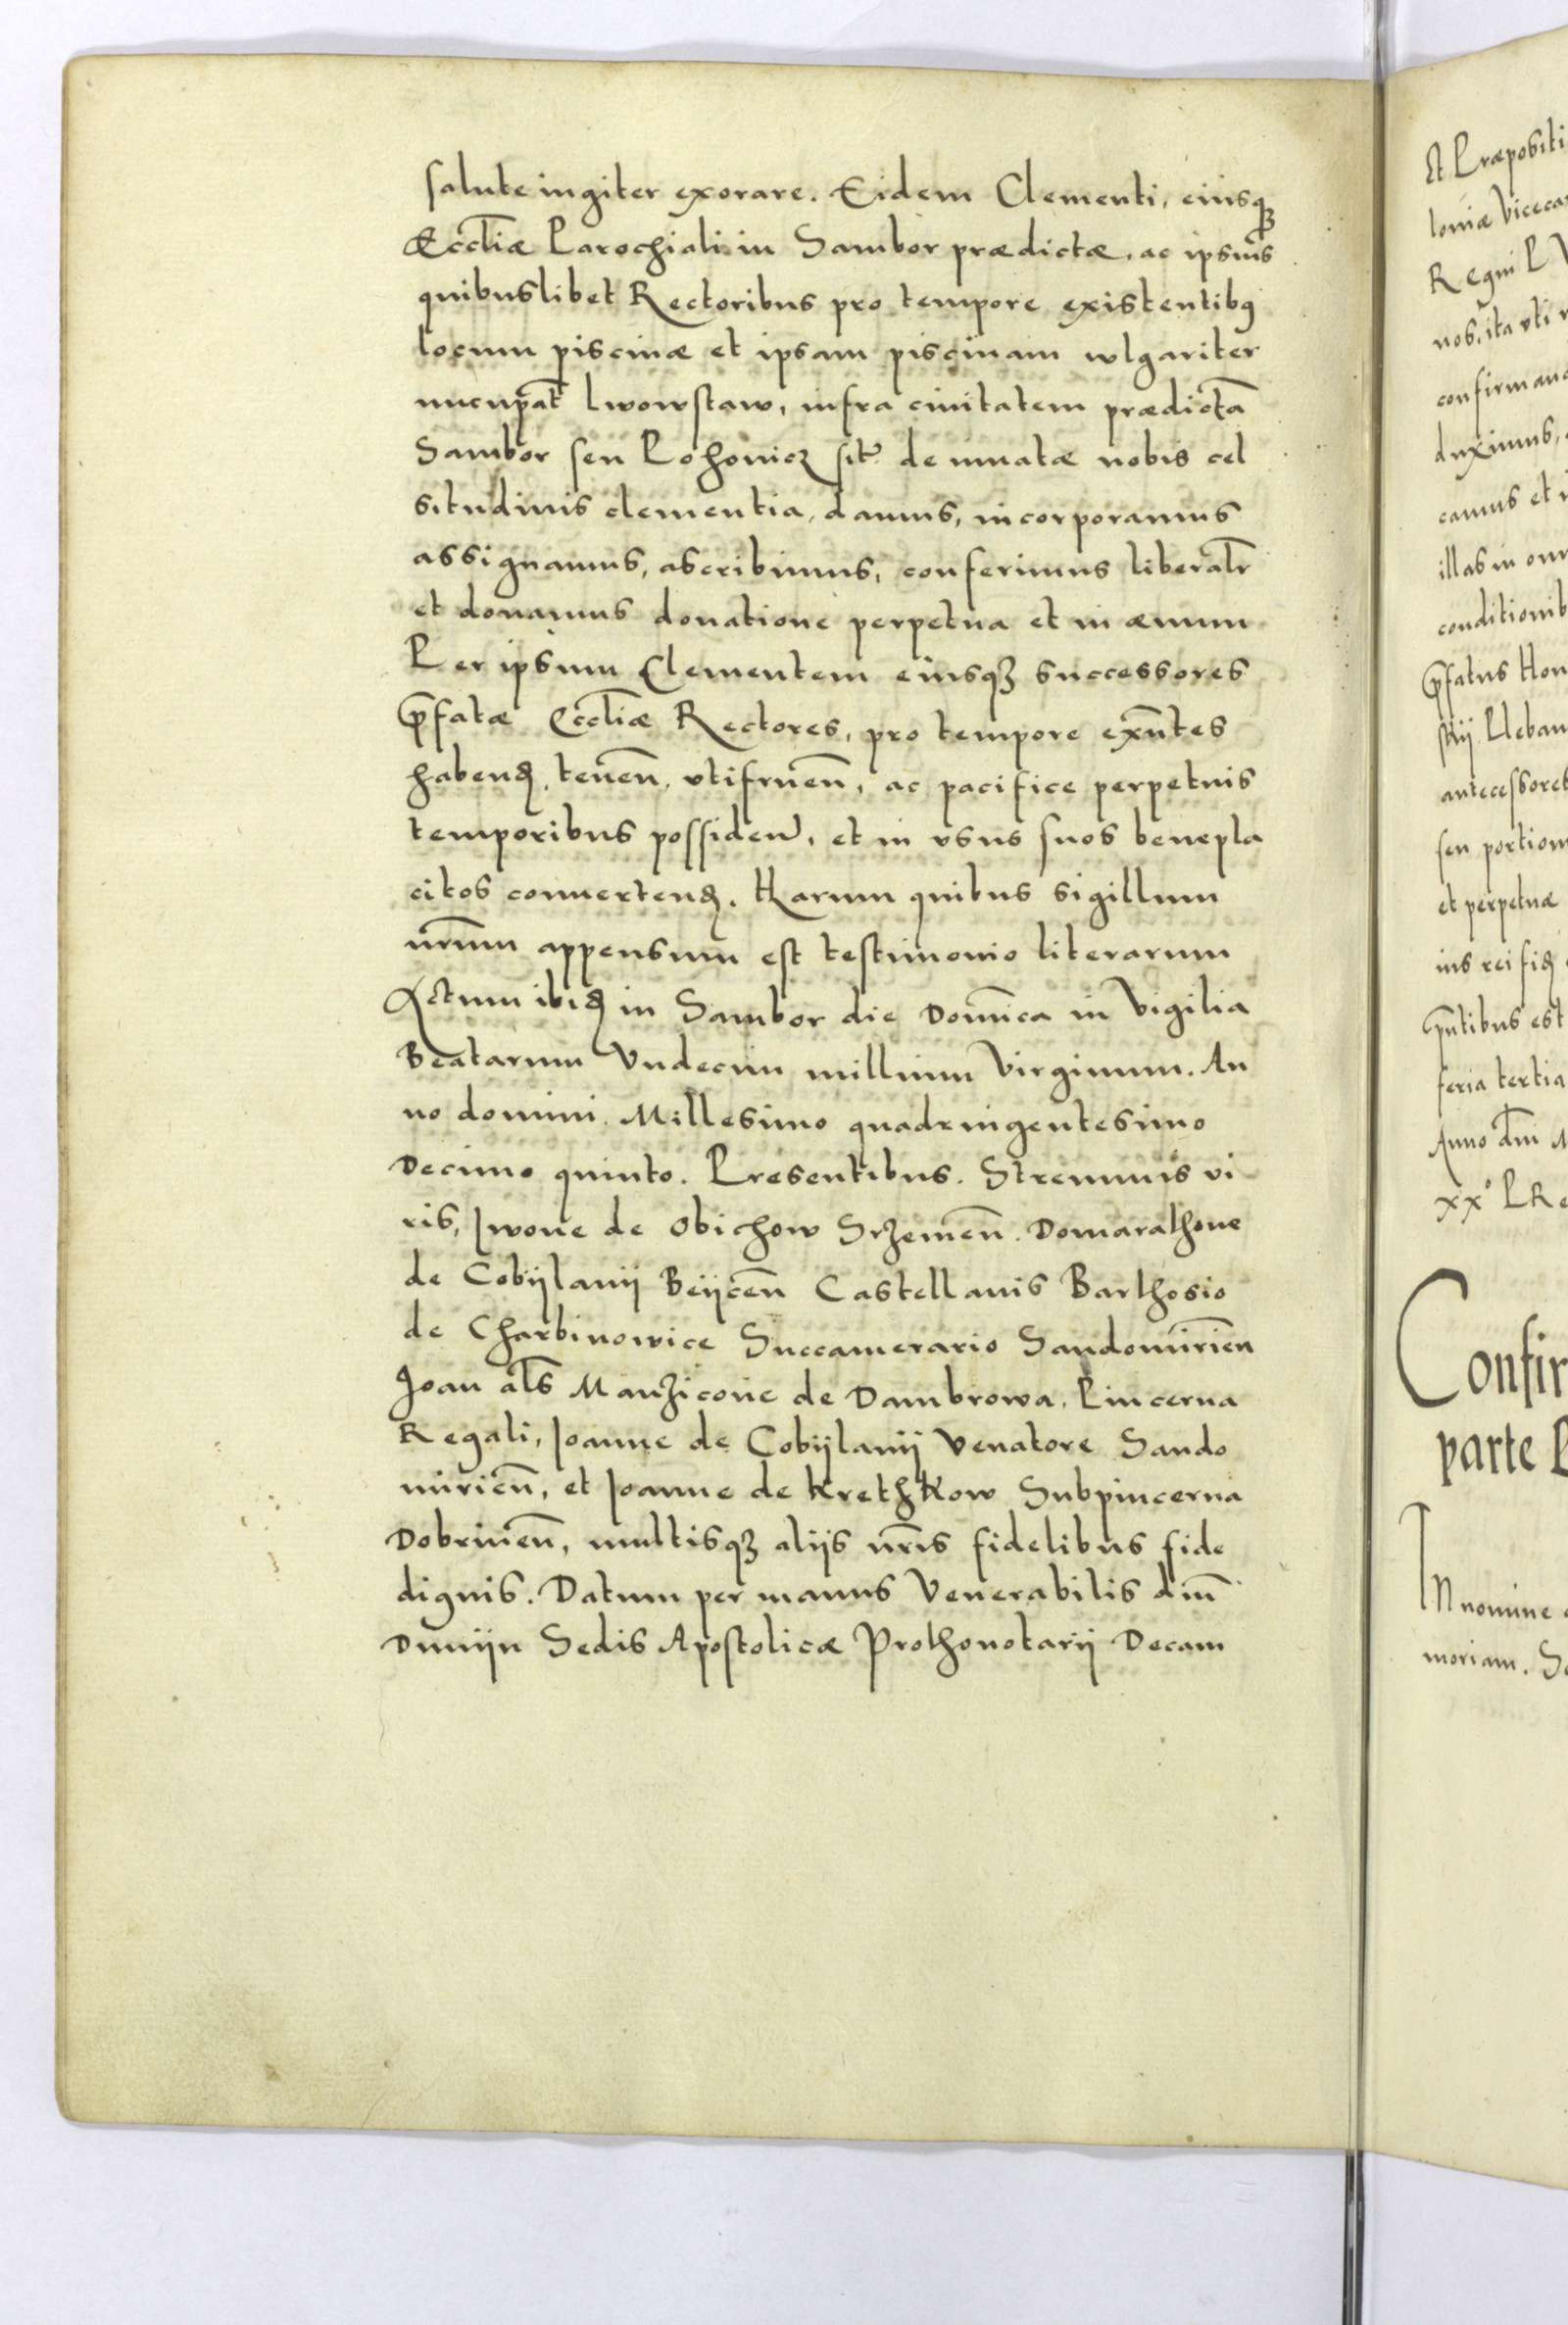 salute iugiter exorare. Eidem Clementi, eiusqꝫ
Eccl̃iæ Parochiali in Sambor prædictæ, ac ipsius
quibuslibet Rectoribus pro tempore existentibꝰ
locum piscinæ et ipsam piscinam wlgariter
nucupat̃ Lwowstaw, infra ciuitatem prædictã
Sambor seu Pohonicz sit̃ de innatæ nobis cel
situdinis clementia, damus, incorporamus
assignamus, ascribimus, conferimus liberalr̃
et donamus donatione perpetua et in æuum
Per ipsum Clementem eiusqꝫ successores
p̃fatæ Eccl̃iæ Rectores, pro tempore exñtes
habend̃, teneñ, vtifrueñ, ac pacifice perpetuis
temporibus possideñ, et in vsus suos benepla
citos conuertend̃. Harum quibus sigillum
nr̃um appensum est testimonio literarum
Actum ibid̃ in Sambor die Domĩca in Vigilia
Beatarum Vndecim millium Virginum. An
no domini. Millesimo quadringentesimo
Decimo quinto. Presentibus. Strenuuis vi
ris, Iwone de Obichow Srzemeñ. Domarathone
de Cobÿlanÿ Beÿceñ Castellanis Barthosio
de Charbinowice Succamerario Sandomirieñ
Joan al̃s Manzicone de Dambrowa. Pincerna
Regali, Joanne de Cobÿlanÿ Venatore Sando
mirieñ, et Joanne de Krethkow Subpincerna
Dobrineñ, multisqꝫ aliis nr̃is fidelibus fide
dignis. Datum per manus Venerabilis dñi
Dunijn Sedis Apostolicæ Prothonotarij Decani
Et Præpositi
loniæ Viceca
Regni P
nos, ita vti
confirmand
duximus,
camus et
illas in om
conditionib
p̃fatus Hon
Pleban
antecessores
seu portion
et perpetuæ
ius rei fid̃
p̃ntibus est
feria tertia
Anno dñi M
xx° PRe
Confir
parte
In nomine
moriam. S